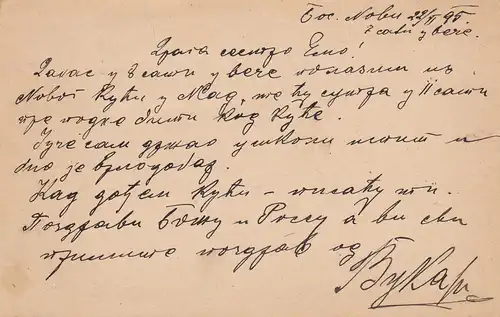 Бос. Нови 22/II 95.
8 сати у вече.
Драга сестро Емо!
Данас у 8 сати у вече полазим из
Новог кући у Мад, те ћу сутра у 11 сати
пре подне бити код куће.
Јуче сам држао у школи испит и
био је врло добар.
Кад дођем кући – писаћу ти.
Поздрави Божу и Росу а ви сви
примите поздрав од